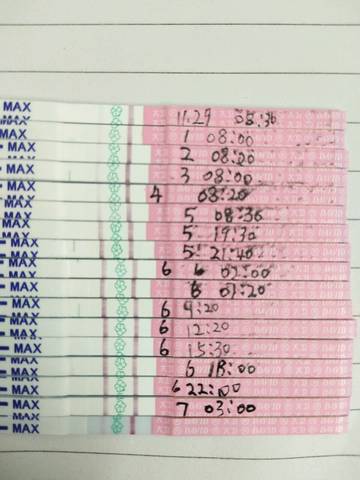 MAX 11.29 08:36
MAX
MAX 1 08:00
MAX 2 08:00
MAX 3 08:00
MAX 4 08:20
MAX 5 08:36
MAX 5 19:30
MAX 5 21:40
MAX 6 6 07:00
MAX 6 07:20
MAX 6 9:20
MAX 6 12:20
MAX 6 15:30
MAX 6 18:00
MAX 6 22:00
MAX 7 03:00